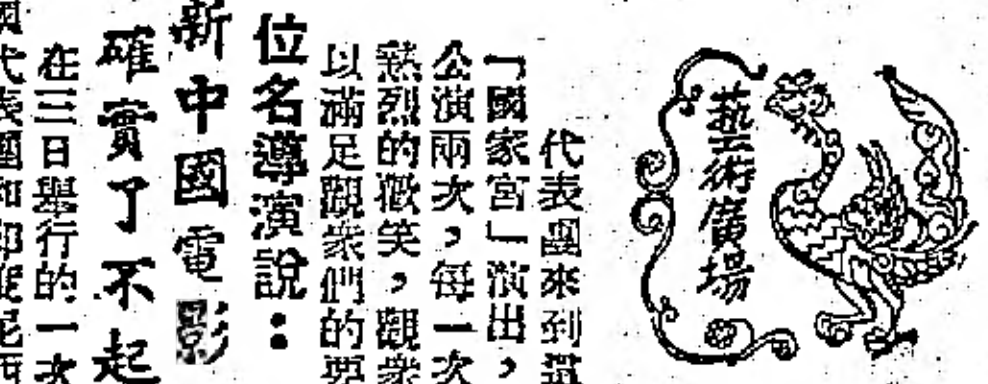 藝術廣場
代表團來到這
「國家宮」演出，
公演兩次，每一次
熱烈的歡笑，觀衆
以滿足觀衆們的要
位名導演說：
新中國電影
確實了不起
在三日舉行的一次
國代表團和印度尼西